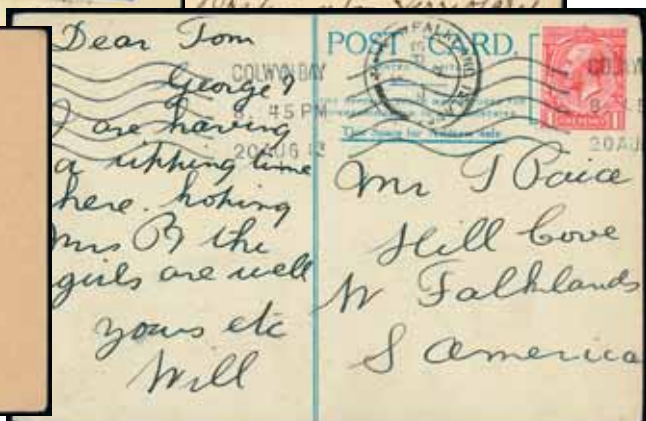 Dear Tom
George &
I are having
a ripping time
here. hoping
Mrs P the
girls are well
yours etc
Will
POST CARD.
COLWYN BAY
8. 45 PM
20 AUG 13
FALKLAND
This Space for Address only
Mr T Paice
Hill Cove
W Falklands
S America